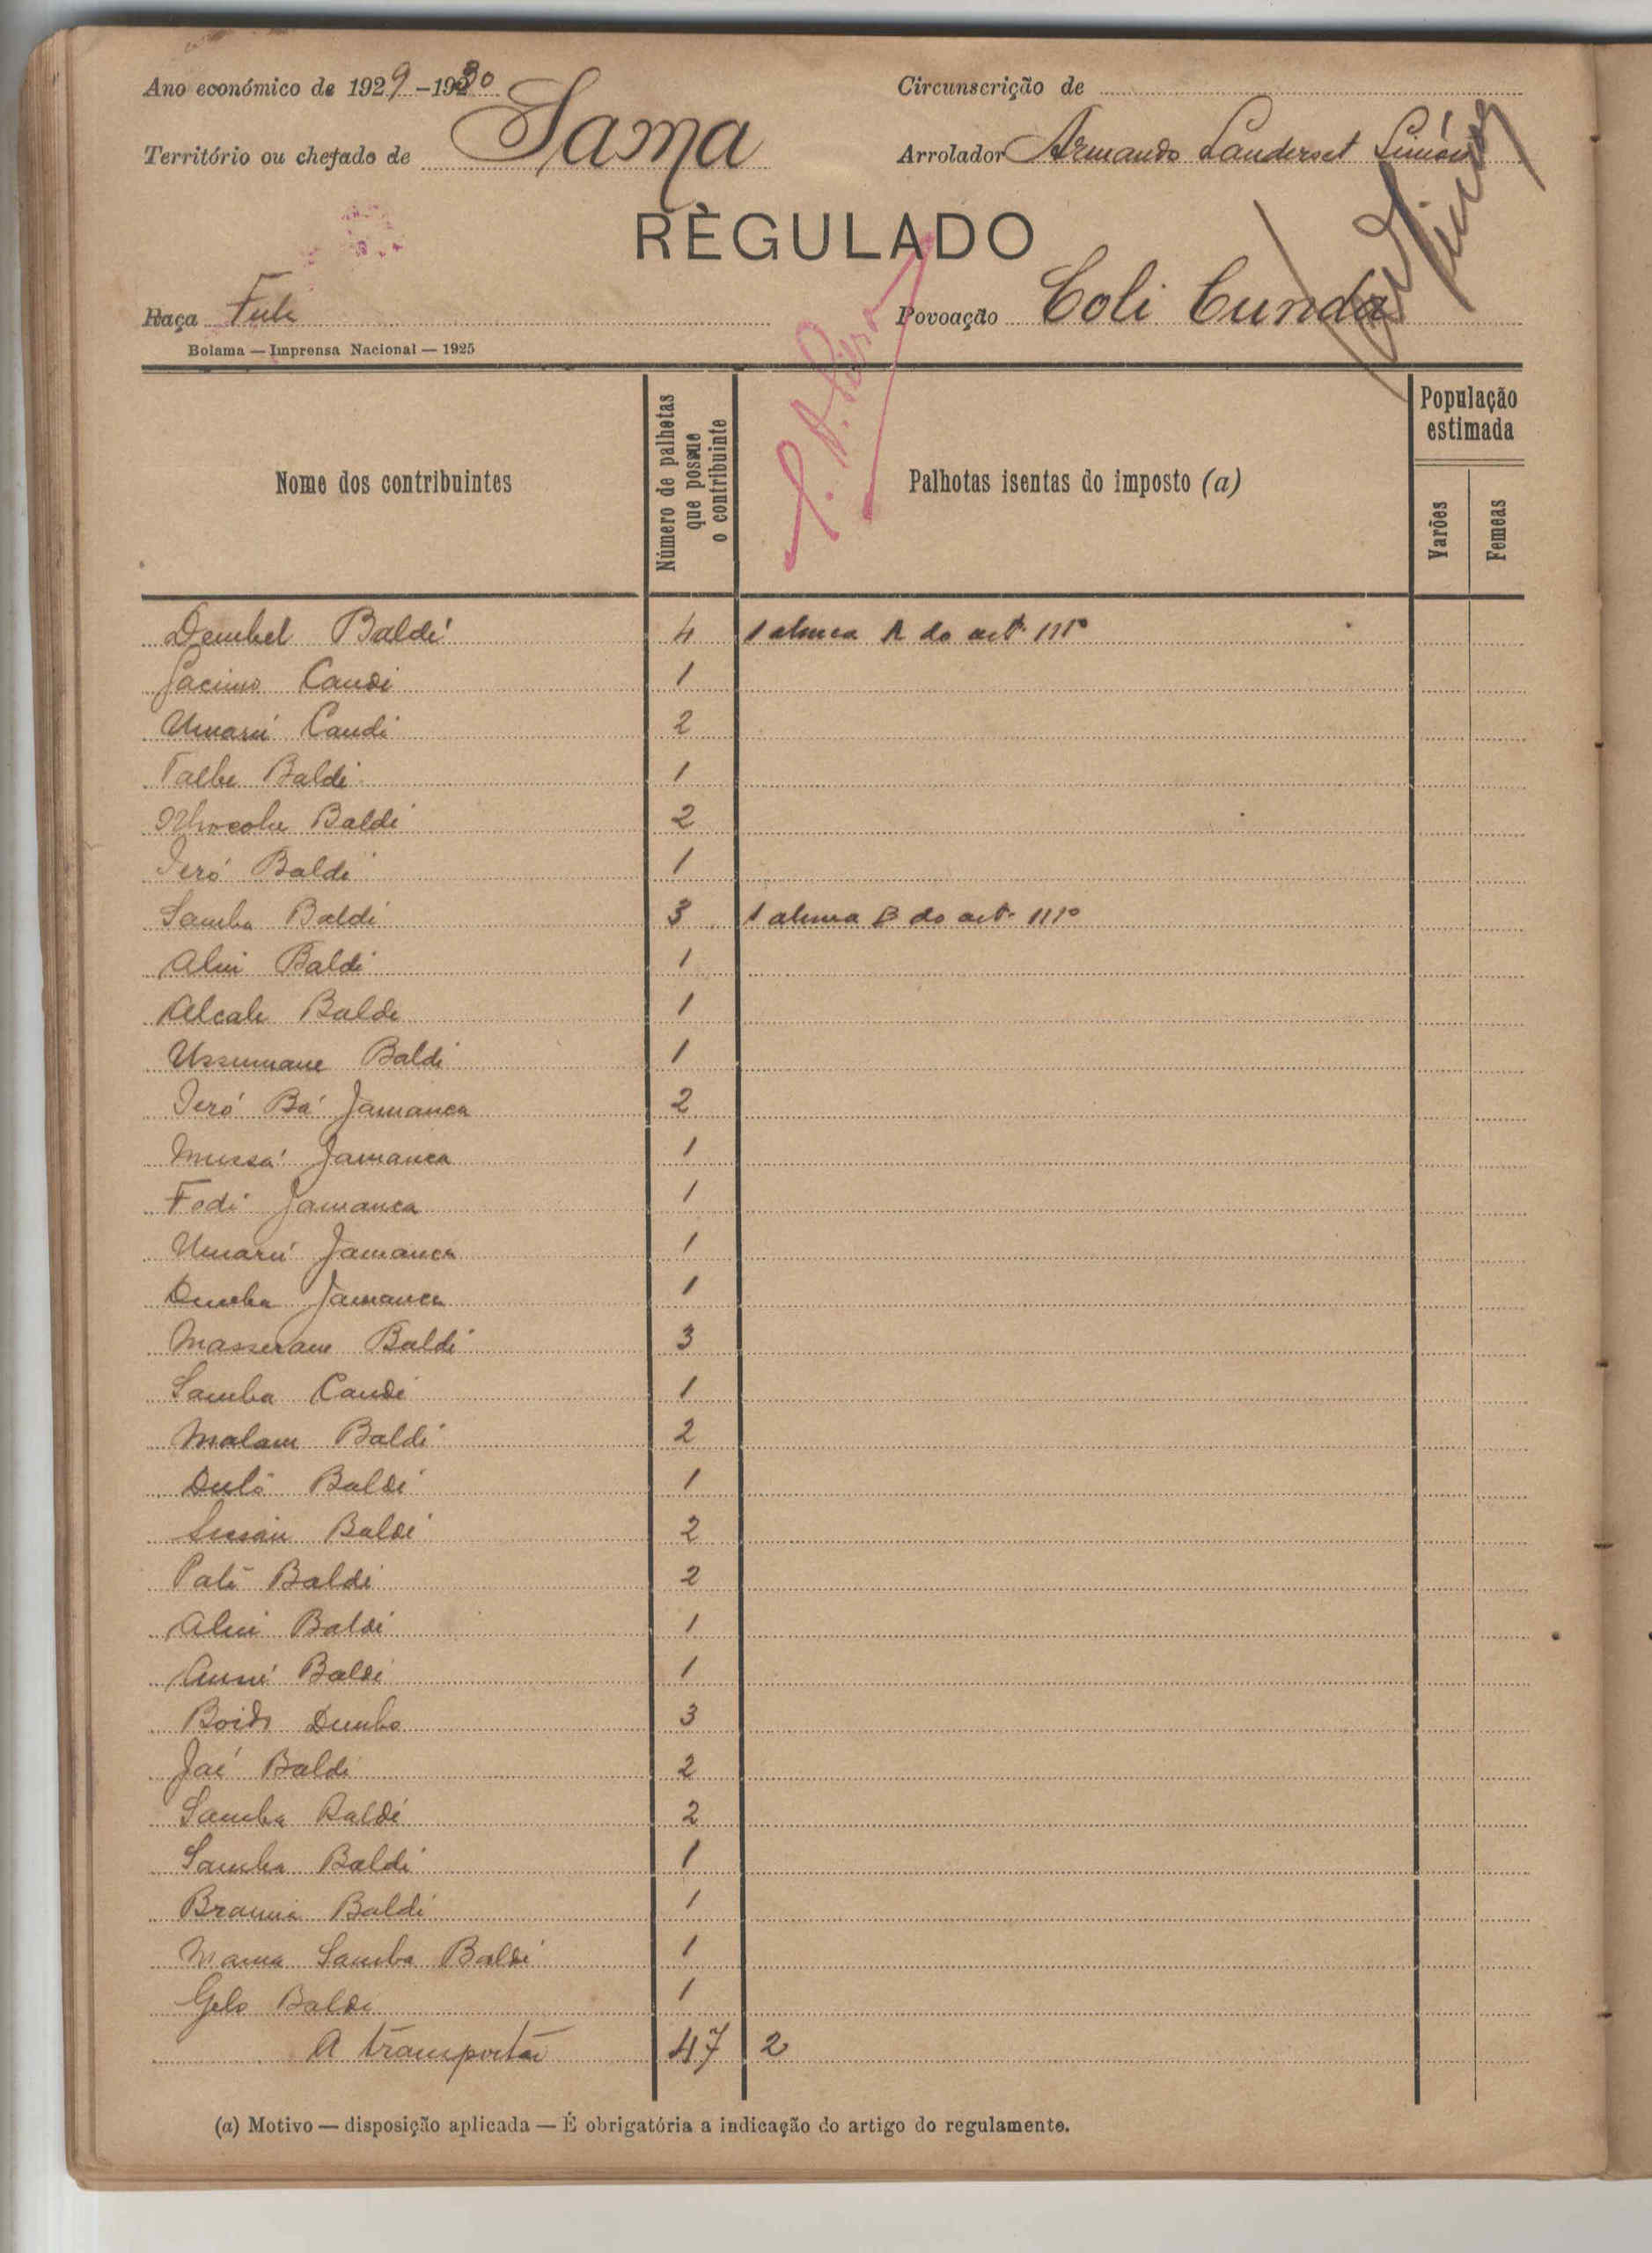 Ano económico de 1929-1930
Circunscrição de
Território ou chefado de Sama
Arrolador Armando Landerset Simões
REGULADO
Raça Fula
Povoação Coli Cunda
Bolama — Imprensa Nacional — 1925
Nome dos contribuintes
Número de palhotas que possue o contribuinte
Palhotas isentas do imposto (a)
População estimada
Varões
Femeas
Dembel Baldé 4 1 alinea A do art. 111º
Candé 1
Umarú Candé 2
Talbe Baldé 1
Baldé 2
Iéró Baldé 1
Samba Baldé 3 1 alinea B do art. 111º
Aliu Baldé 1
Alcale Balde 1
Ussumane Baldé 1
Iéró Bá Jamanca 2
Mussá Jamanca 1
Fodé Jamanca 1
Umarú Jamanca 1
Demba Jamanca 1
Baldé 3
Samba Candé 1
Malam Baldé 2
Duló Baldé 1
Baldé 2
Paté Baldé 2
Aliu Baldé 1
Baldé 1
3
Jaé Baldé 2
Samba Baldé 2
Samba Baldé 1
Braima Baldé 1
Mama Samba Baldé 1
Gelo Baldé 1
A transportar 47 2
(a) Motivo — disposição aplicada — É obrigatória a indicação do artigo do regulamento.